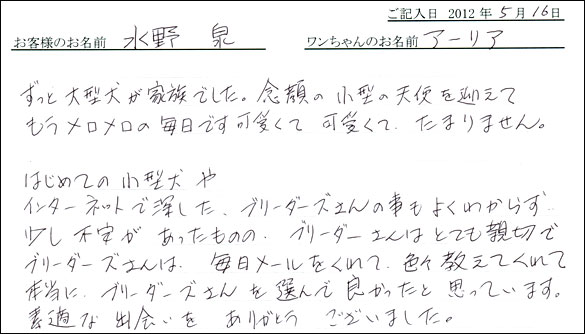 ご記入日 2012年5月16日
お客様のお名前 水野 泉 ワンちゃんのお名前 アーリア
ずっと大型犬が家族でした。念願の小型の天使を迎えて
もうメロメロの毎日です可愛くて 可愛くて、たまりません。
はじめての小型犬や
インターネットで探した、ブリーダーズさんの事もよくわからず
少し不安が あったものの、ブリーダーさんはとても親切で
ブリーダーズさんは、毎日メールをくれて、色々教えてくれて
本当に、ブリーダーズさんを選んで良かったと思っています。
素適な出会いを ありがとう ございました。